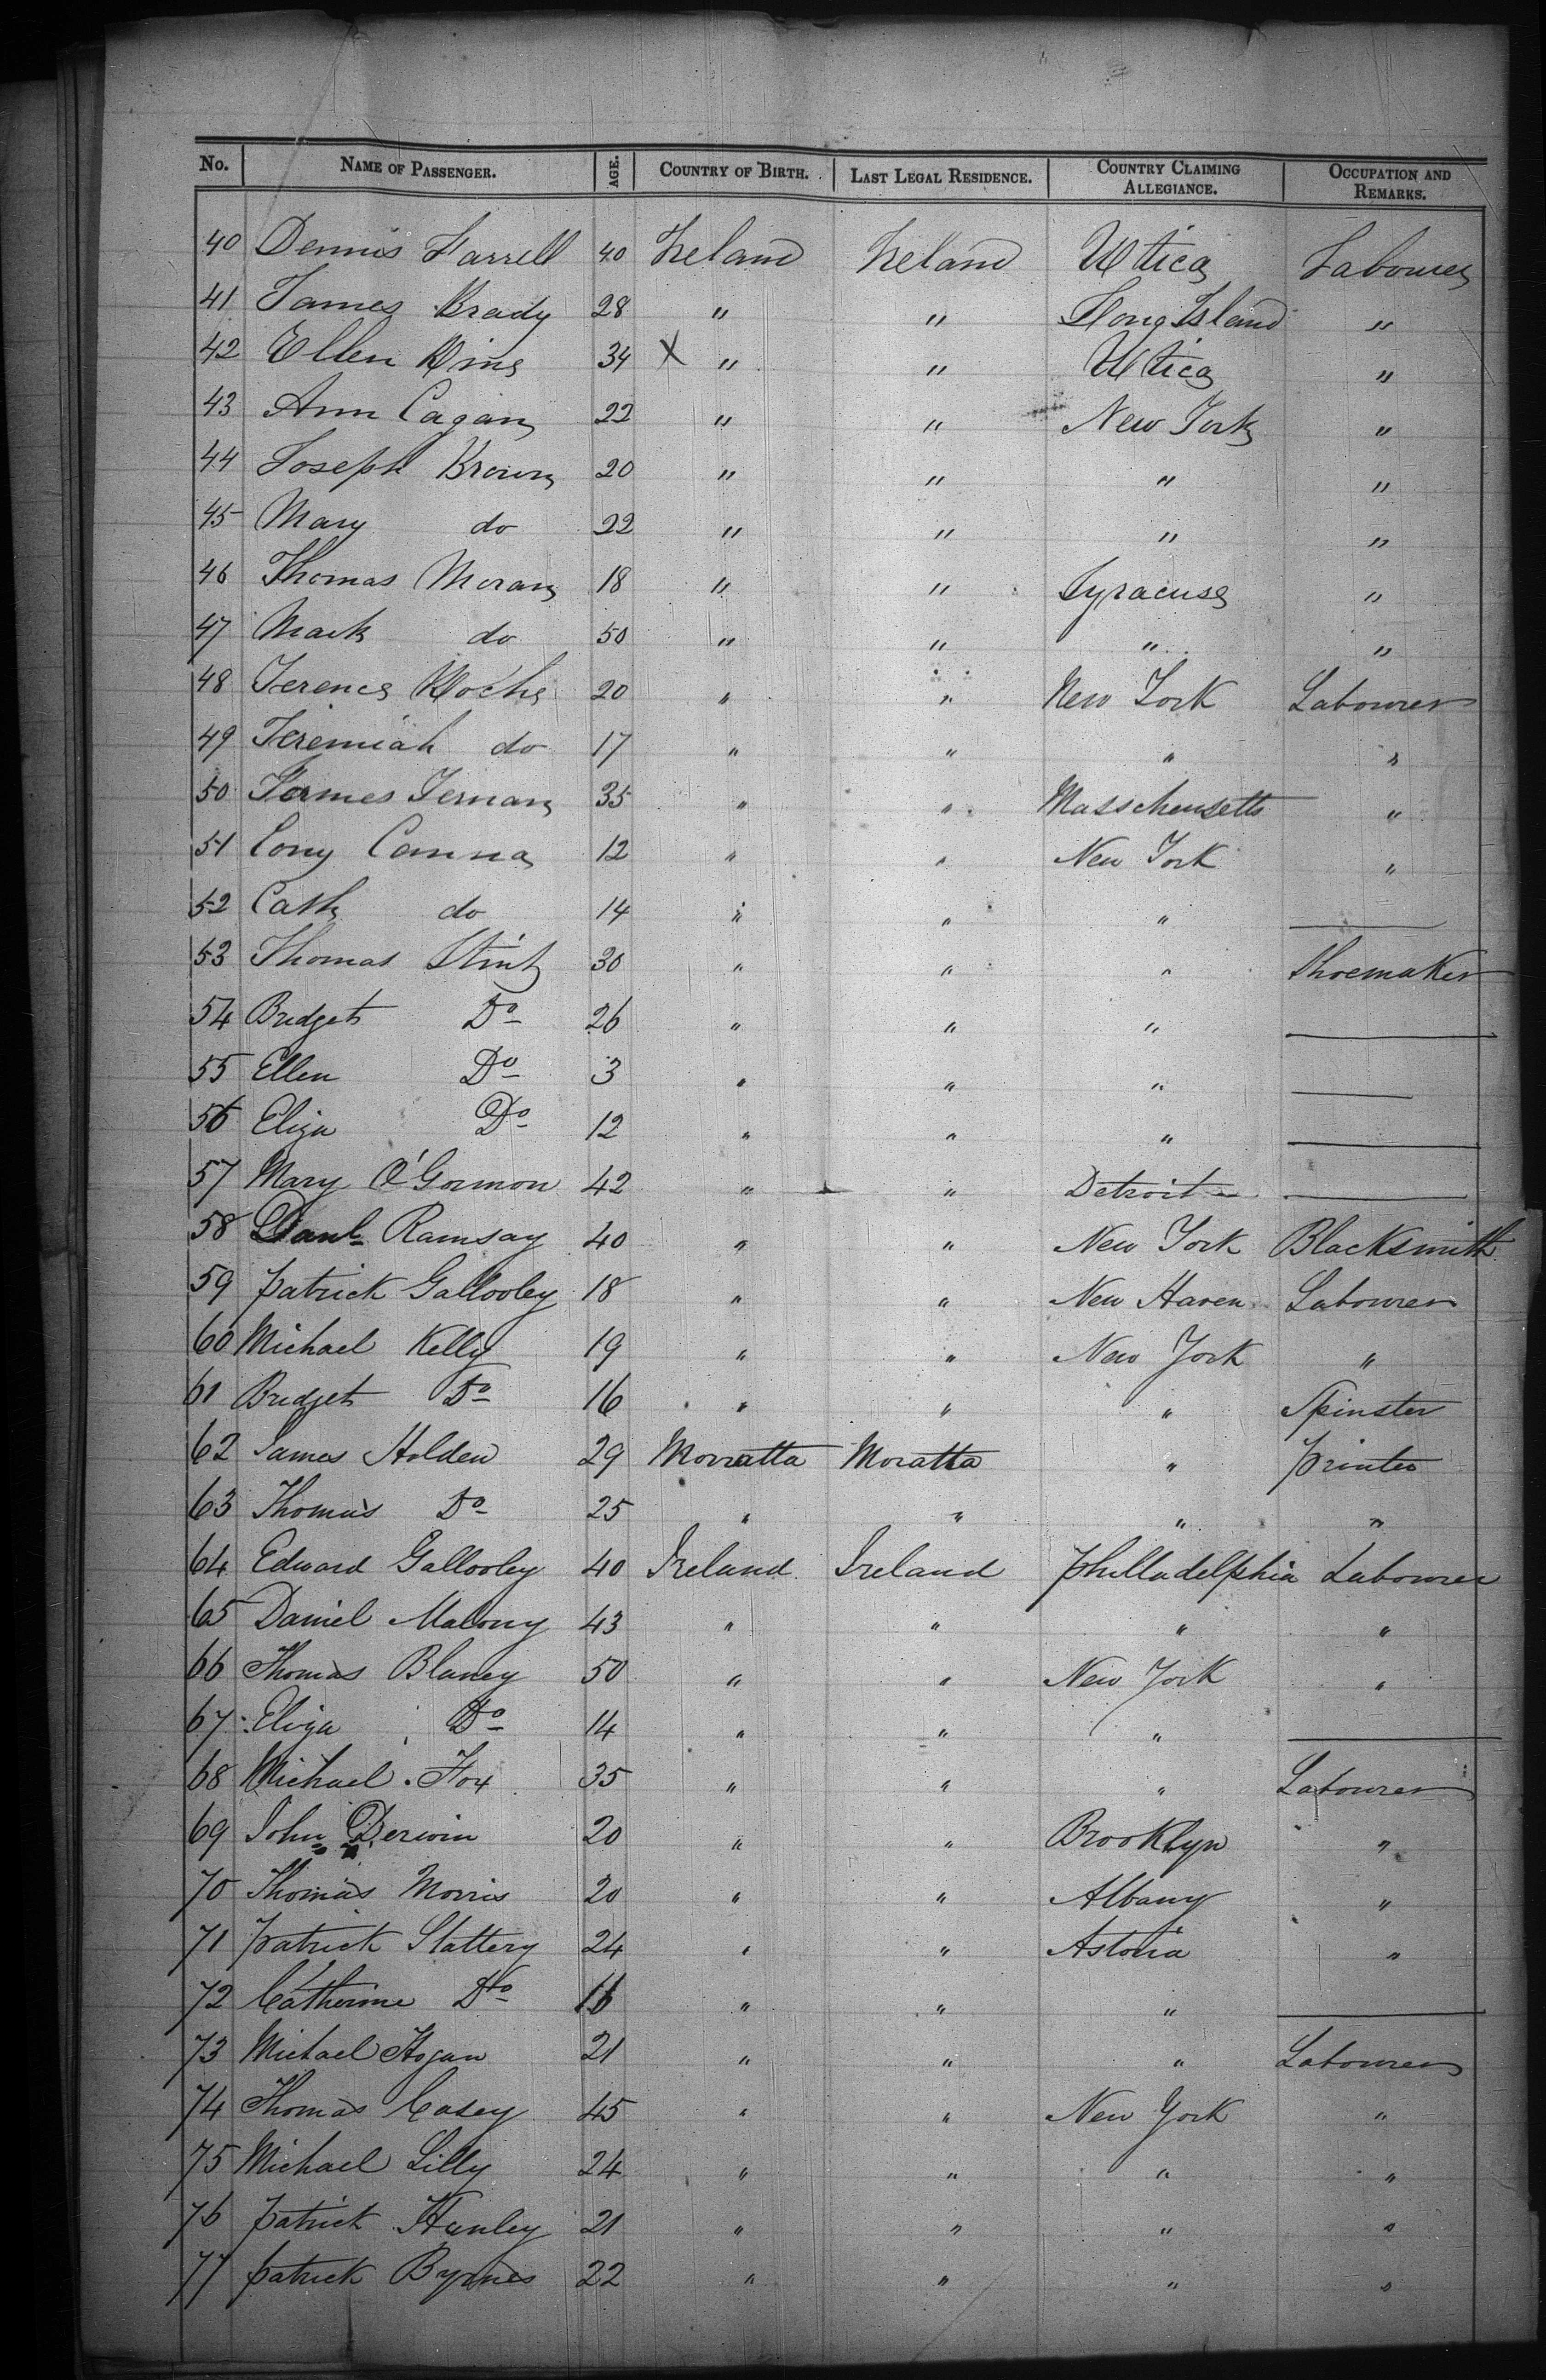 No. NAME OF PASSENGER. AGE. COUNTRY OF BIRTH. LAST LEGAL RESIDENCE. COUNTRY CLAIMING ALLEGIANCE. OCCUPATION AND REMARKS.
40 Dennis Farrell 40 Ireland Ireland Utica Labourer
41 James Brady 28 " " Long Island "
42 Ellen 34 X " " Utica "
43 Ann Cagan 22 " " New York "
44 Joseph Brown 20 " " " "
45 Mary do 22 " " " "
46 Thomas Moran 18 " " Syracuse "
47 Mark do 50 " " " "
48 Terence Roche 20 " " New York Labourer
49 Jeremiah do 17 " " " "
50 James Ternan 35 " " Masscheusetts "
51 Cony Canna 12 " " New York "
52 Cath do 14 " " " —
53 Thomas Stint 30 " " " Shoemaker
54 Bridget Do 26 " " " —
55 Ellen Do 3 " " " —
56 Eliza Do 12 " " " —
57 Mary O'Gormon 42 " " Detroit —
58 Danl Ramsay 40 " " New York Blacksmith
59 Patrick Gallooley 18 " " New Haven Labourer
60 Michael Kelly 19 " " New York "
61 Bridget Do 16 " " " Spinster
62 James Holden 29 Morratta Moratta " Printer
63 Thomas Do 25 " " " "
64 Edward Gallooley 40 Ireland Ireland Philladelphia Labourer
65 Daniel Malony 43 " " " "
66 Thomas Blaney 50 " " New York "
67 Eliza Do 14 " " " —
68 Michael Fox 35 " " " Labourer
69 John Derwin 20 " " Brooklyn "
70 Thomas Morris 20 " " Albany "
71 Patrick Slattery 24 " " Astoria "
72 Catherine Do 16 " " " —
73 Michael Hogan 21 " " " Labourer
74 Thomas Casey 45 " " New York "
75 Michael Lilly 24 " " " "
76 Patrick Hanley 21 " " " "
77 Patrick Byrnes 22 " " " "